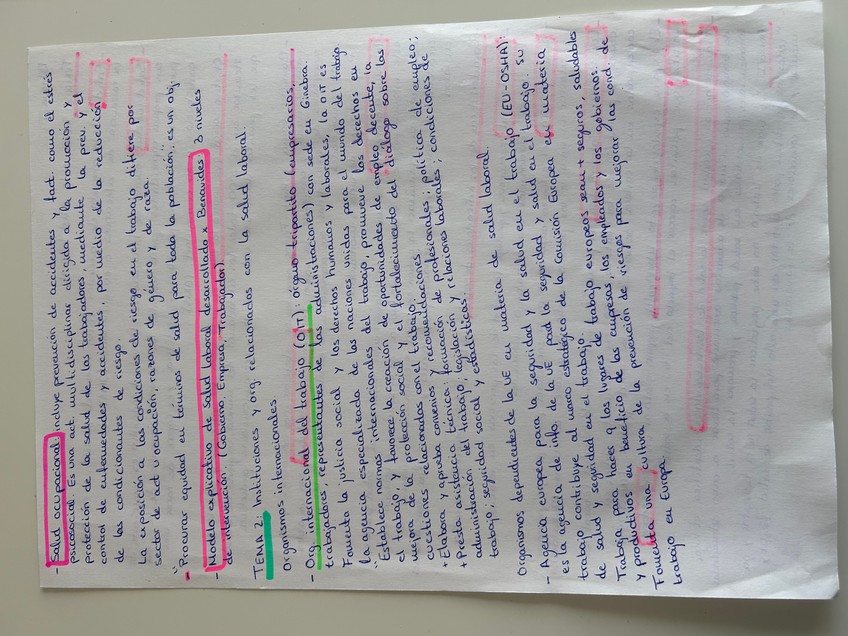 - Salud ocupacional incluye prevención de accidentes y fact. como el estrés
psicosocial. Es una act. multidisciplinar dirigida a la promoción y
protección de la salud de los trabajadores, mediante la prev. y el
control de enfermedades y accidentes, por medio de la reducción
de los condicionantes de riesgo.
La exposición a las condiciones de riesgo en el trabajo difiere por
sector de act u ocupación, razones de género y de raza.
- "Procurar equidad en términos de salud para toda la población", es un obj.
- Modelo explicativo de Salud laboral desarrollado x Benavides: 3 niveles
de intervención. (Gobierno, Empresa, Trabajador).
TEMA 2: Instituciones y org. relacionados con la salud laboral.
Organismos internacionales
- Org. internacional del trabajo (OIT): órgano tripartito (empresarios,
trabajadores, representantes de las administraciones) con sede en Ginebra.
Fomenta la justicia social y los derechos humanos y laborales, la OIT es
la agencia especializada de las naciones unidas para el mundo del trabajo
"Establece normas internacionales del trabajo, promueve los derechos en
el trabajo y favorece la creación de oportunidades de empleo decente, la
mejora de la protección social y el fortalecimiento del diálogo sobre las
cuestiones relacionadas con el trabajo.
+ Elabora y aprueba convenios y recomendaciones
+ Presta asistencia técnica: formación de profesionales; política de empleo;
administración del trabajo, legislación y relaciones laborales; condiciones de
trabajo; seguridad social y estadísticas.
Organismos dependientes de la UE en materia de salud laboral.
- Agencia europea para la seguridad y la salud en el trabajo (EU-OSHA):
es la agencia de info. de la UE para la seguridad y salud en el trabajo. Su
trabajo contribuye al marco estratégico de la Comisión Europea en materia
de salud y seguridad en el trabajo.
Trabaja para hacer q los lugares de trabajo europeos sean + seguros, saludables
y productivos en beneficio de las empresas, los empleados y los gobiernos.
Fomenta una cultura de la prevención de riesgos para mejorar las cond. de
trabajo en Europa.